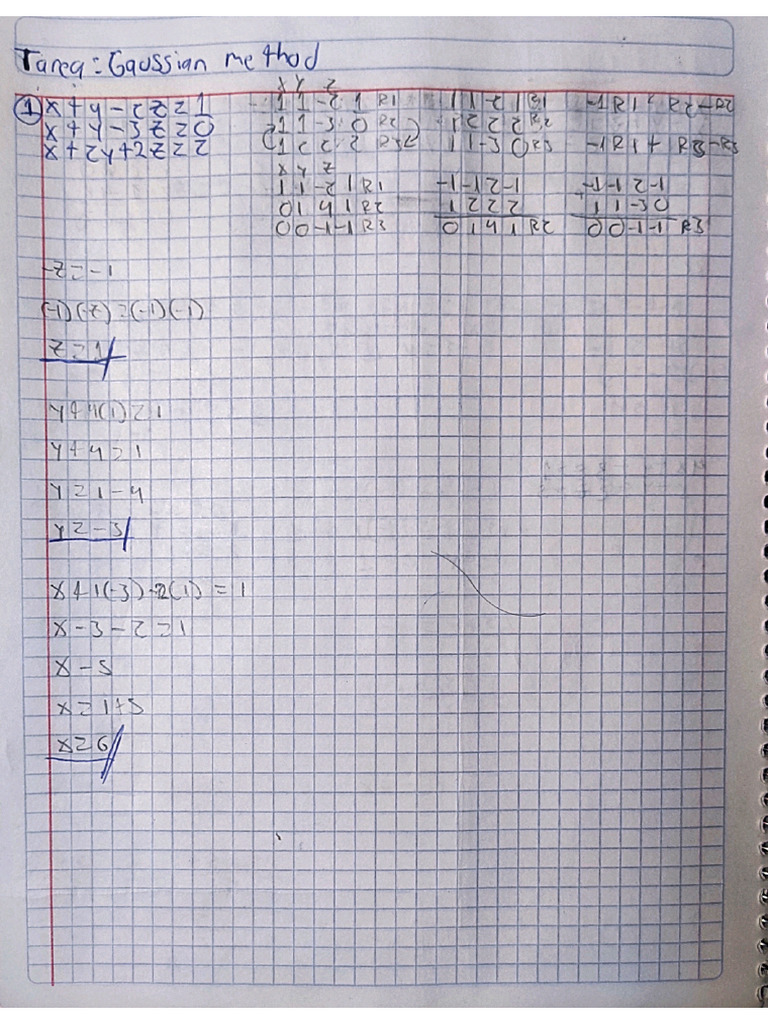 Tarea: Gaussian method
① x + y - 2z = 1
x + y - 3z = 0
x + 2y + 2z = 2
x y z
1 1 -2 1 R1
1 1 -3 0 R2
1 2 2 2 R3
1 1 -2 1 R1
1 2 2 2 R2
1 1 -3 0 R3
-1R1 + R2→R2
-1R1 + R3→R3
x y z
1 1 -2 1 R1
0 1 4 1 R2
0 0 -1 -1 R3
-1 -1 2 -1
1 2 2 2
0 1 4 1 R2
-1 -1 2 -1
+ 1 1 -3 0
0 0 -1 -1 R3
-z = -1
(-1)(-z) = (-1)(-1)
z = 1
y + 4(1) = 1
y + 4 = 1
y = 1 - 4
y = -3
x + 1(-3) - 2(1) = 1
x - 3 - 2 = 1
x - 5
x = 1 + 5
x = 6